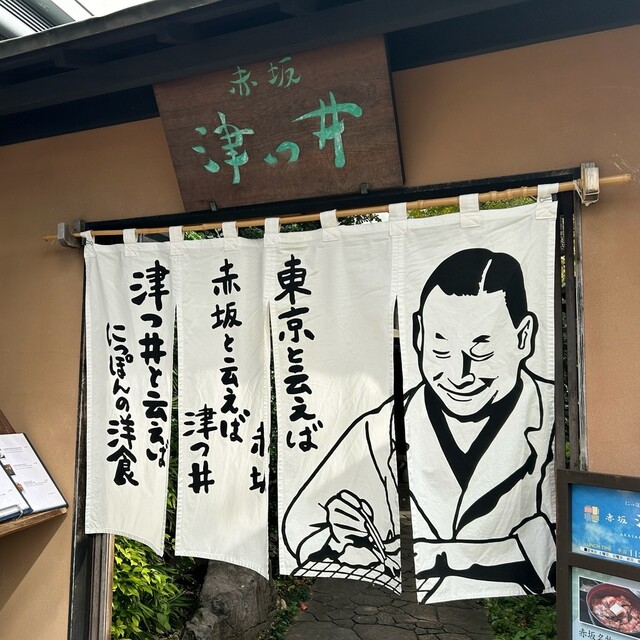 赤坂
津つ井
東京と云えば
赤坂
赤坂と云えば
津つ井
津つ井と云えば
にっぽんの洋食
赤坂
赤坂名物